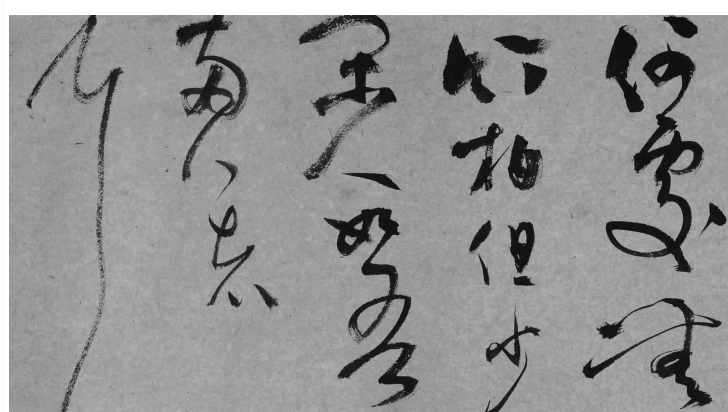 何處無
竹柏但少
閑人如吾
兩人者
耳